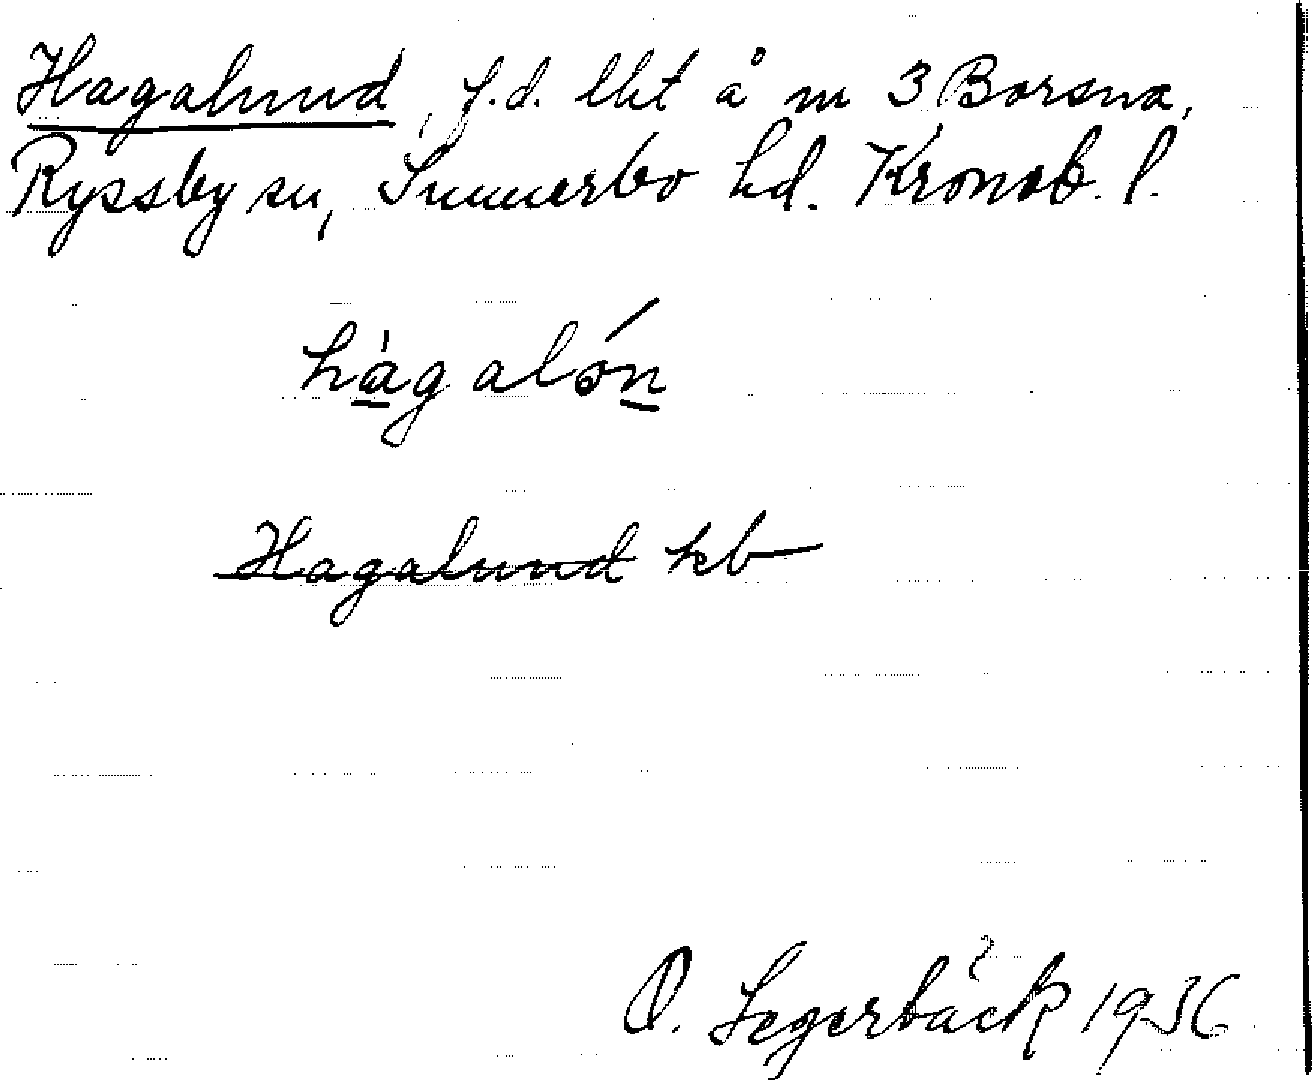 Hagalund, f.d. lht å nr 3 Borsna,
Ryssby sn, Sunnerbo hd. Kronob. l.
hagalón
Hagalund kb
O. Segerbäck 1936